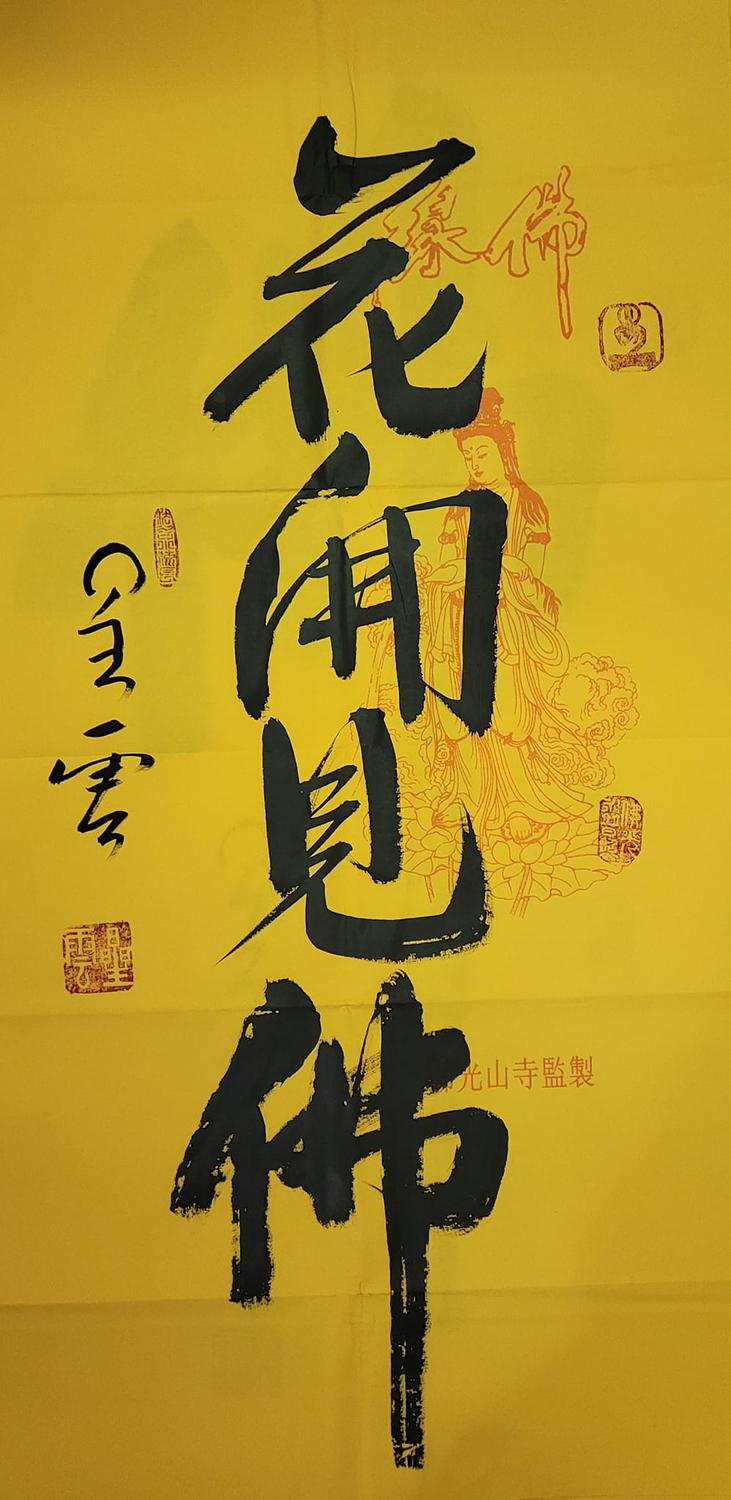 佛緣
花開見佛
佛光山寺監製
星雲
星雲